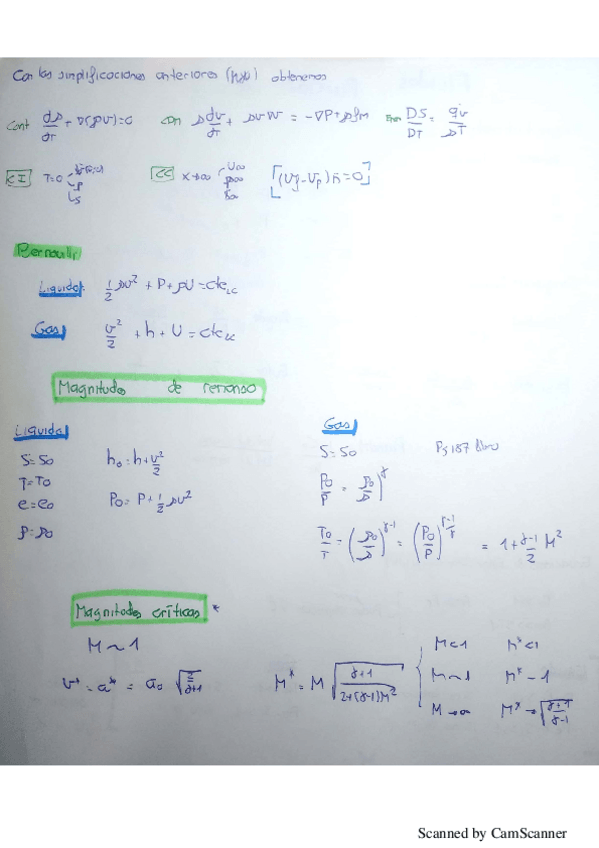 Con las simplificaciones anteriores (hyp) obtenemos
Cont dρ/dT + ∇(ρv)=0 CDM ρdv/dT + ρv∇v = -∇P+ρfm Ener DS/DT = qv/ρT
CI T=0 P S CC x→∞ U∞ p∞ [(Vf-Vp)n=0]
Bernoulli
Liquidos: 1/2 ρv² + P + ρU = cte LC
Gas v²/2 + h + U = cte LC
Magnitudes de remanso
Liquidos
S=So h₀=h+v²/2
T=To P₀=P+1/2 ρv²
e=eo
ρ=ρo
Gas
S=So Pg 187 libro
P₀/P = (ρ₀/ρ)^γ
T₀/T = (ρ₀/ρ)^(γ-1) = (P₀/P)^((γ-1)/γ) = 1+(γ-1)/2 M²
Magnitudes críticas *
M~1
v* = a* = a₀ √(2/(γ+1))
M* = M √((γ+1)/(2+(γ-1)M²))
M<1 M*<1
M~1 M*~1
M→∞ M*→√((γ+1)/(γ-1))
Scanned by CamScanner